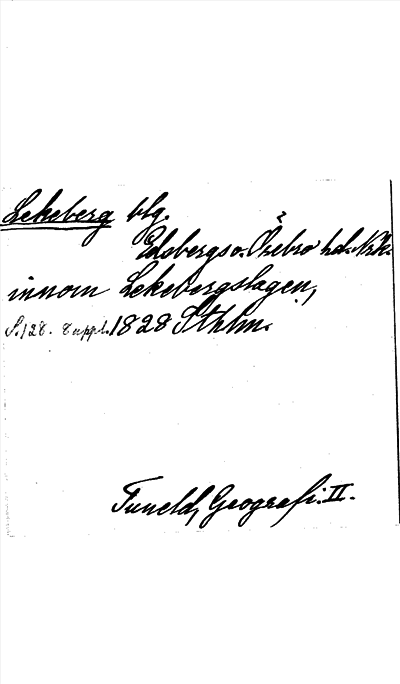 Lekeberg blg.
Edsbergs o. Örebro hd. Nrk.
innom Lekebergslagen,
S. 128. 8 uppl. 1828 Sthlm.
Tuneld, Geografi. II.